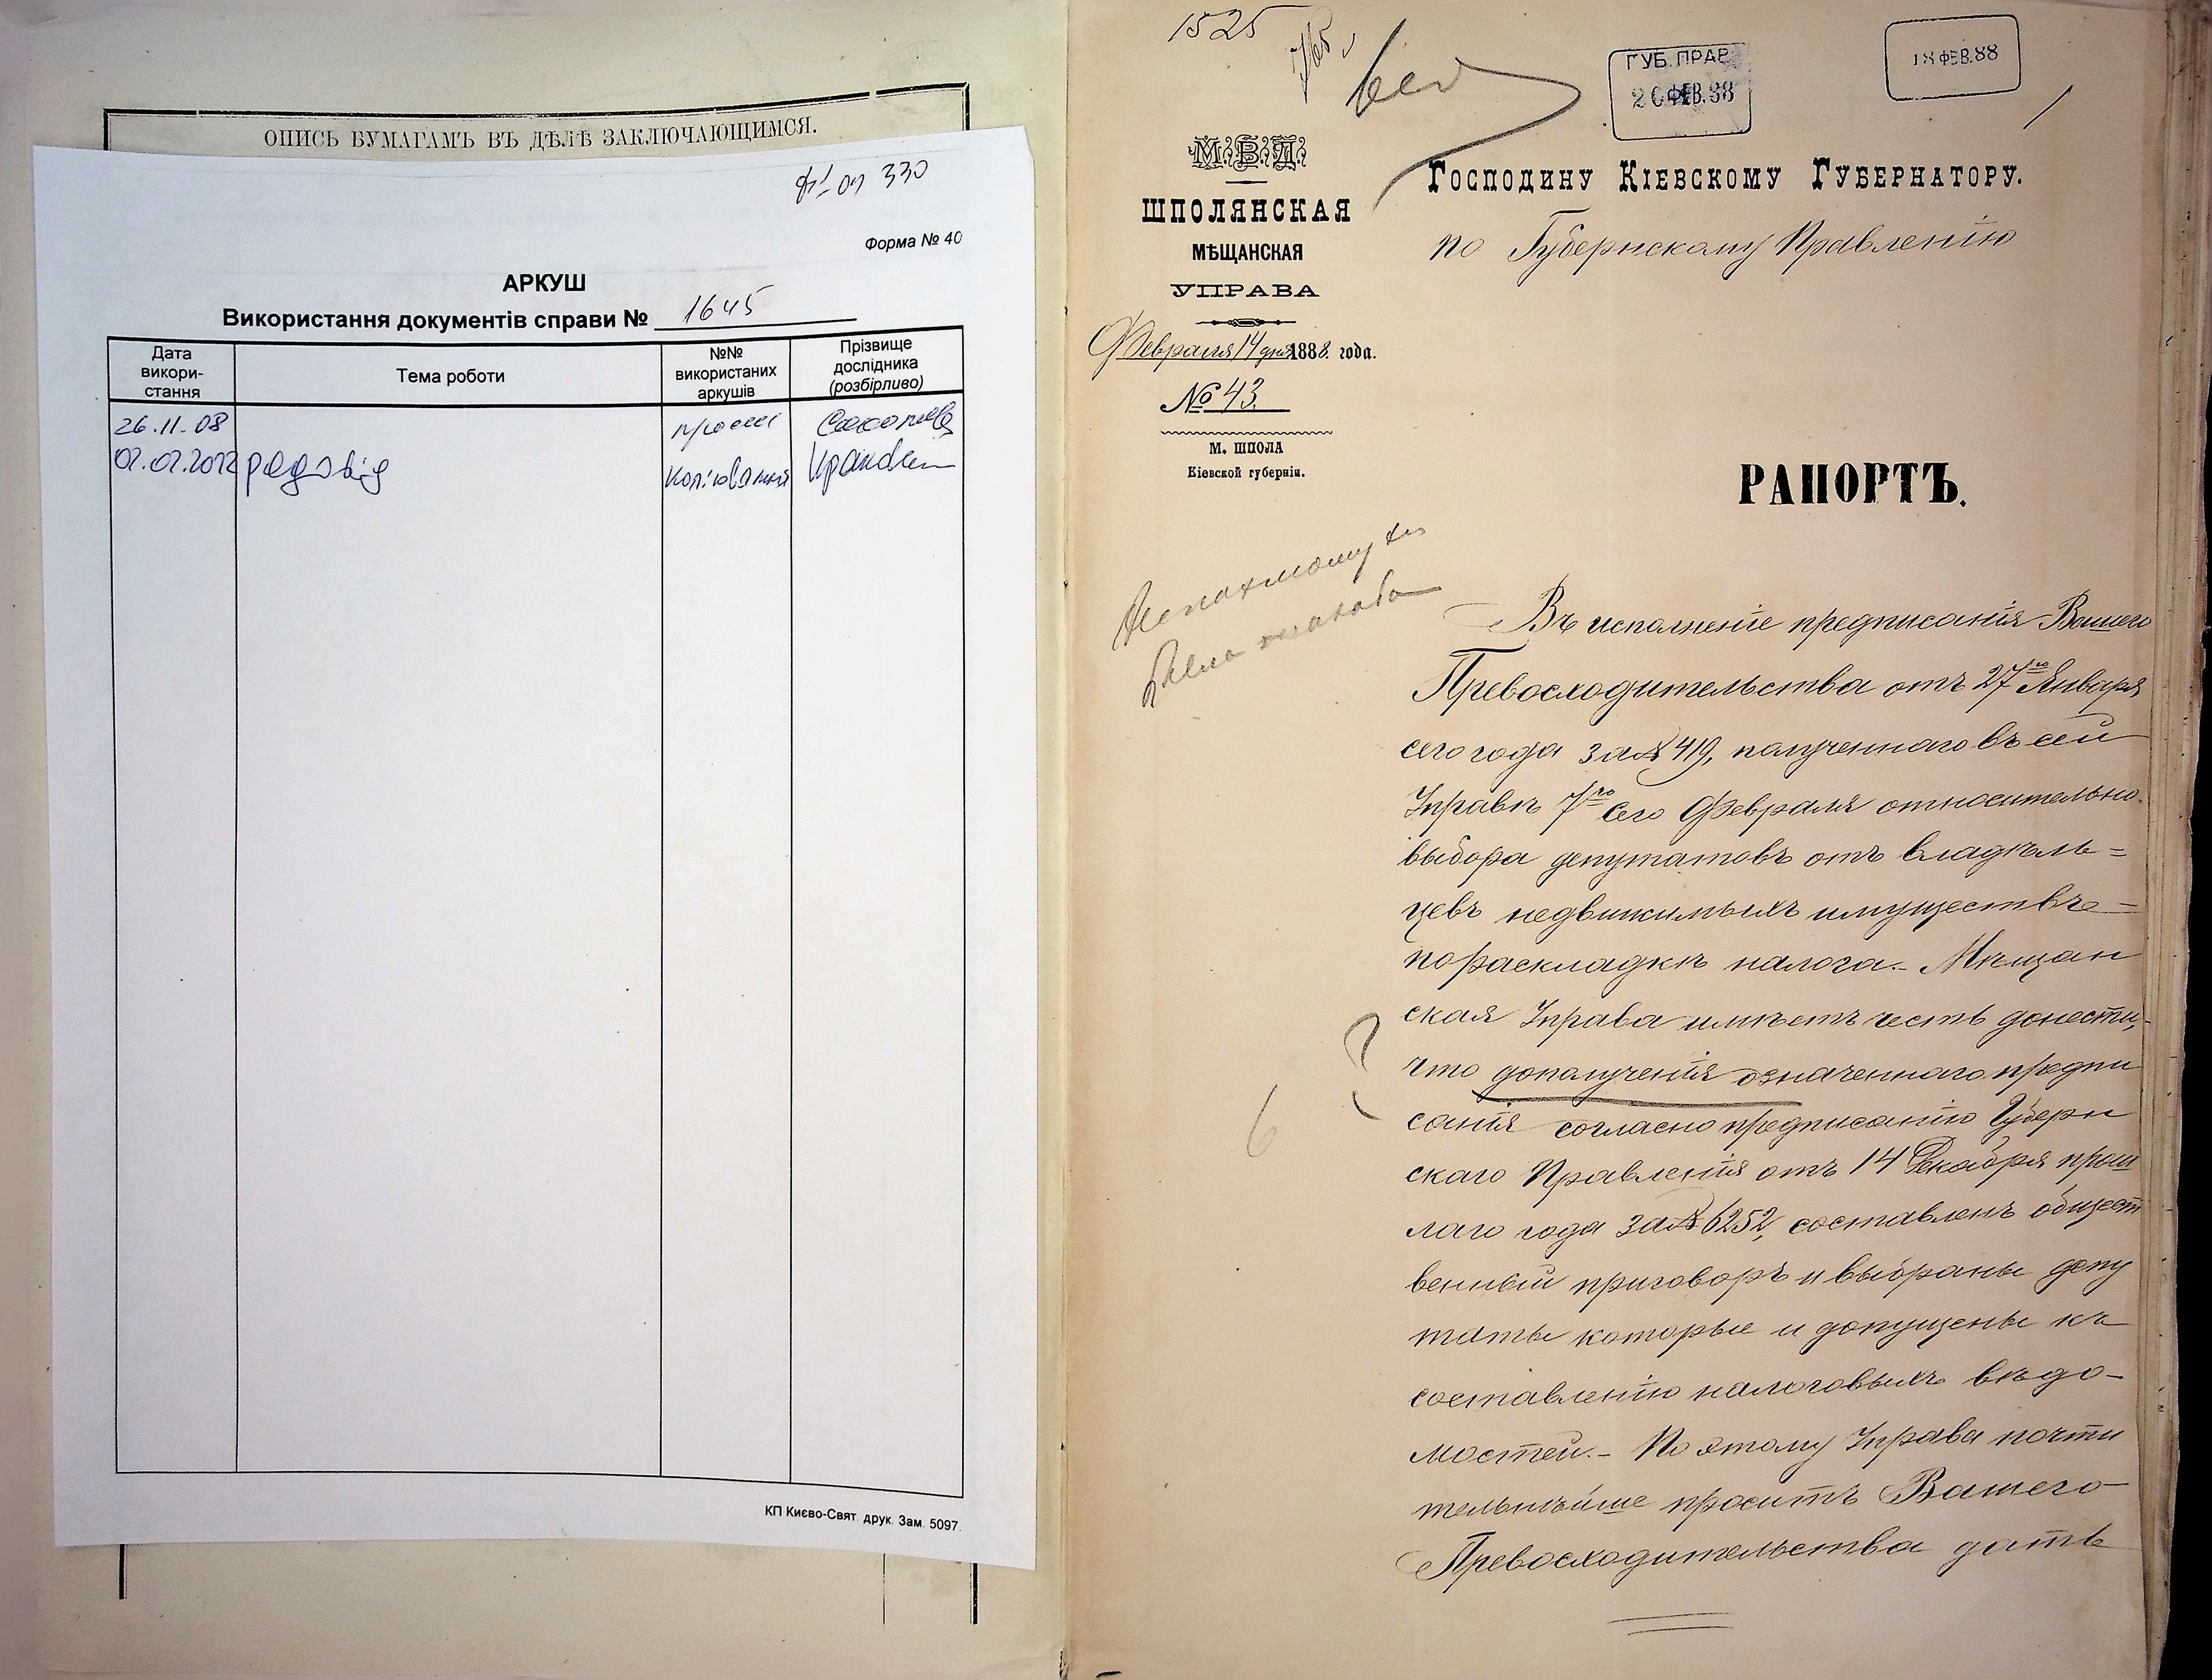 ОПИСЬ БУМАГАМЪ ВЪ ДѢЛѢ ЗАКЛЮЧАЮЩИМСЯ.
330
Форма № 40
АРКУШ
Використання документів справи № 1645
Дата
викори-
стання
Тема роботи
№№
використаних
аркушів
Прізвище
дослідника
(розбірливо)
26.11.08
02.02.2012 родовід
копіювання
КП Києво-Свят. друк. Зам. 5097.
1525
ГУБ. ПРАВ
20 ФЕВ. 88
18 ФЕВ. 88
М.В.Д.
ШПОЛЯНСКАЯ
МѢЩАНСКАЯ
УПРАВА
Февраля 14 дня 1888. года.
№ 43.
М. ШПОЛА
Кіевской губерніи.
Господину Кіевскому Губернатору.
по Губернскому Правленію
РАПОРТЪ.
Въ исполненіе предписанія Вашего
Превосходительства отъ 27го Января
сего года за № 419, полученнаго въ сей
Управѣ 7го сего Февраля относительно
выбора депутатовъ отъ владѣль=
цевъ недвижимыхъ имуществъ=
по раскладкѣ налога.- Мѣщан
ская Управа имѣетъ честь донести,
что до полученія означеннаго предпи
санія согласно предписанію Губерн
скаго Правленія отъ 14 Декабря прош
лаго года за № 6252, составленъ общест
венный приговоръ и выбраны депу
таты которые и допущены къ
составленію налоговыхъ вѣдо-
мостей.- По этому Управа почти
тельнѣйше проситъ Вашего
Превосходительства дать
6